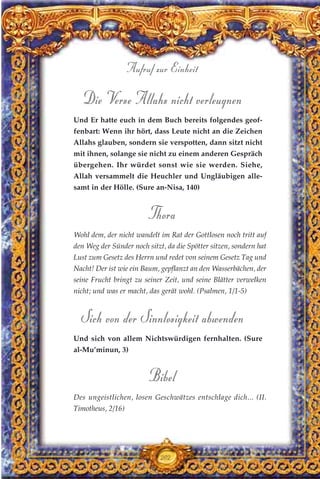 Aufruf zur Einheit
Die Verse Allahs nicht verleugnen
Und Er hatte euch in dem Buch bereits folgendes geof-
fenbart: Wenn ihr hört, dass Leute nicht an die Zeichen
Allahs glauben, sondern sie verspotten, dann sitzt nicht
mit ihnen, solange sie nicht zu einem anderen Gespräch
übergehen. Ihr würdet sonst wie sie werden. Siehe,
Allah versammelt die Heuchler und Ungläubigen alle-
samt in der Hölle. (Sure an-Nisa, 140)
Thora
Wohl dem, der nicht wandelt im Rat der Gottlosen noch tritt auf
den Weg der Sünder noch sitzt, da die Spötter sitzen, sondern hat
Lust zum Gesetz des Herrn und redet von seinem Gesetz Tag und
Nacht! Der ist wie ein Baum, gepflanzt an den Wasserbächen, der
seine Frucht bringt zu seiner Zeit, und seine Blätter verwelken
nicht; und was er macht, das gerät wohl. (Psalmen, 1/1-5)
Sich von der Sinnlosigkeit abwenden
Und sich von allem Nichtswürdigen fernhalten. (Sure
al-Mu'minun, 3)
Bibel
Des ungeistlichen, losen Geschwätzes entschlage dich... (II.
Timotheus, 2/16)
202